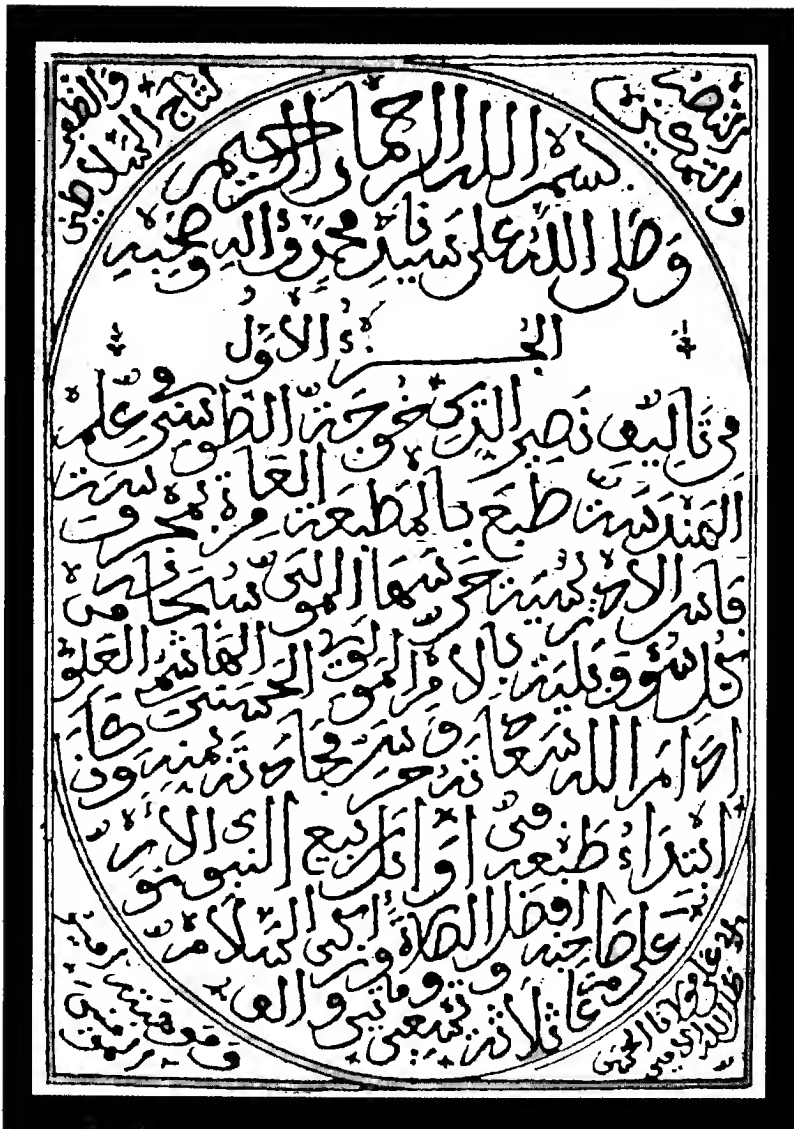 النصر
والتمكين
والظفر
لتاج السلاطين
بسم الله الرحمان الرحيم
وصلى الله على سيدنا محمد وآله وصحبه
الجزء الأول
في تأليف نصير الدين خوجة الطوسي في علم
الهندسة طبع بالمطبعة العامرة بمحروسة
فاس الإدريسية حرسها المولى سبحانه من
كل سوء وبلية بالأمر المولوي الحسني الهاشمي العلوي
ادام الله سعادته وحرس مجادته بمنه وكان
ابتداء طبعه في أوائل ربيع النبوي الأنور
على صاحبه أفضل الصلاة وأزكى السلام
عام ثلاثة وتسعين ومايتين والف
مولانا الحسن
ظل الله